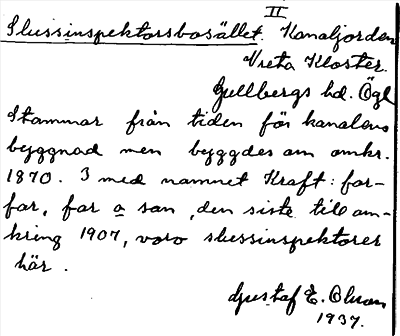 II
Slussinspektorsbosället. Kanaljorden
Vreta Kloster.
Gullbergs hd. Ögl
Stammar från tiden för kanalens
byggnad men byggdes om omkr.
1870. 3 med namnet Kraft: far-
far, far o son, den siste till om-
kring 1907, voro slussinspektorer
här.
Gustaf E. Olson
1937.